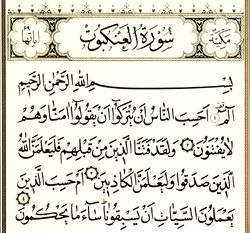 مكية سورة العنكبوت آياتها
بسم الله الرحمن الرحيم
الٓمٓ ١ أَحَسِبَ النَّاسُ أَن يُتْرَكُوا أَن يَقُولُوا آمَنَّا وَهُمْ
لَا يُفْتَنُونَ ٢ وَلَقَدْ فَتَنَّا الَّذِينَ مِن قَبْلِهِمْ فَلَيَعْلَمَنَّ اللَّهُ
الَّذِينَ صَدَقُوا وَلَيَعْلَمَنَّ الْكَاذِبِينَ ٣ أَمْ حَسِبَ الَّذِينَ
يَعْمَلُونَ السَّيِّئَاتِ أَن يَسْبِقُونَا سَاءَ مَا يَحْكُمُونَ